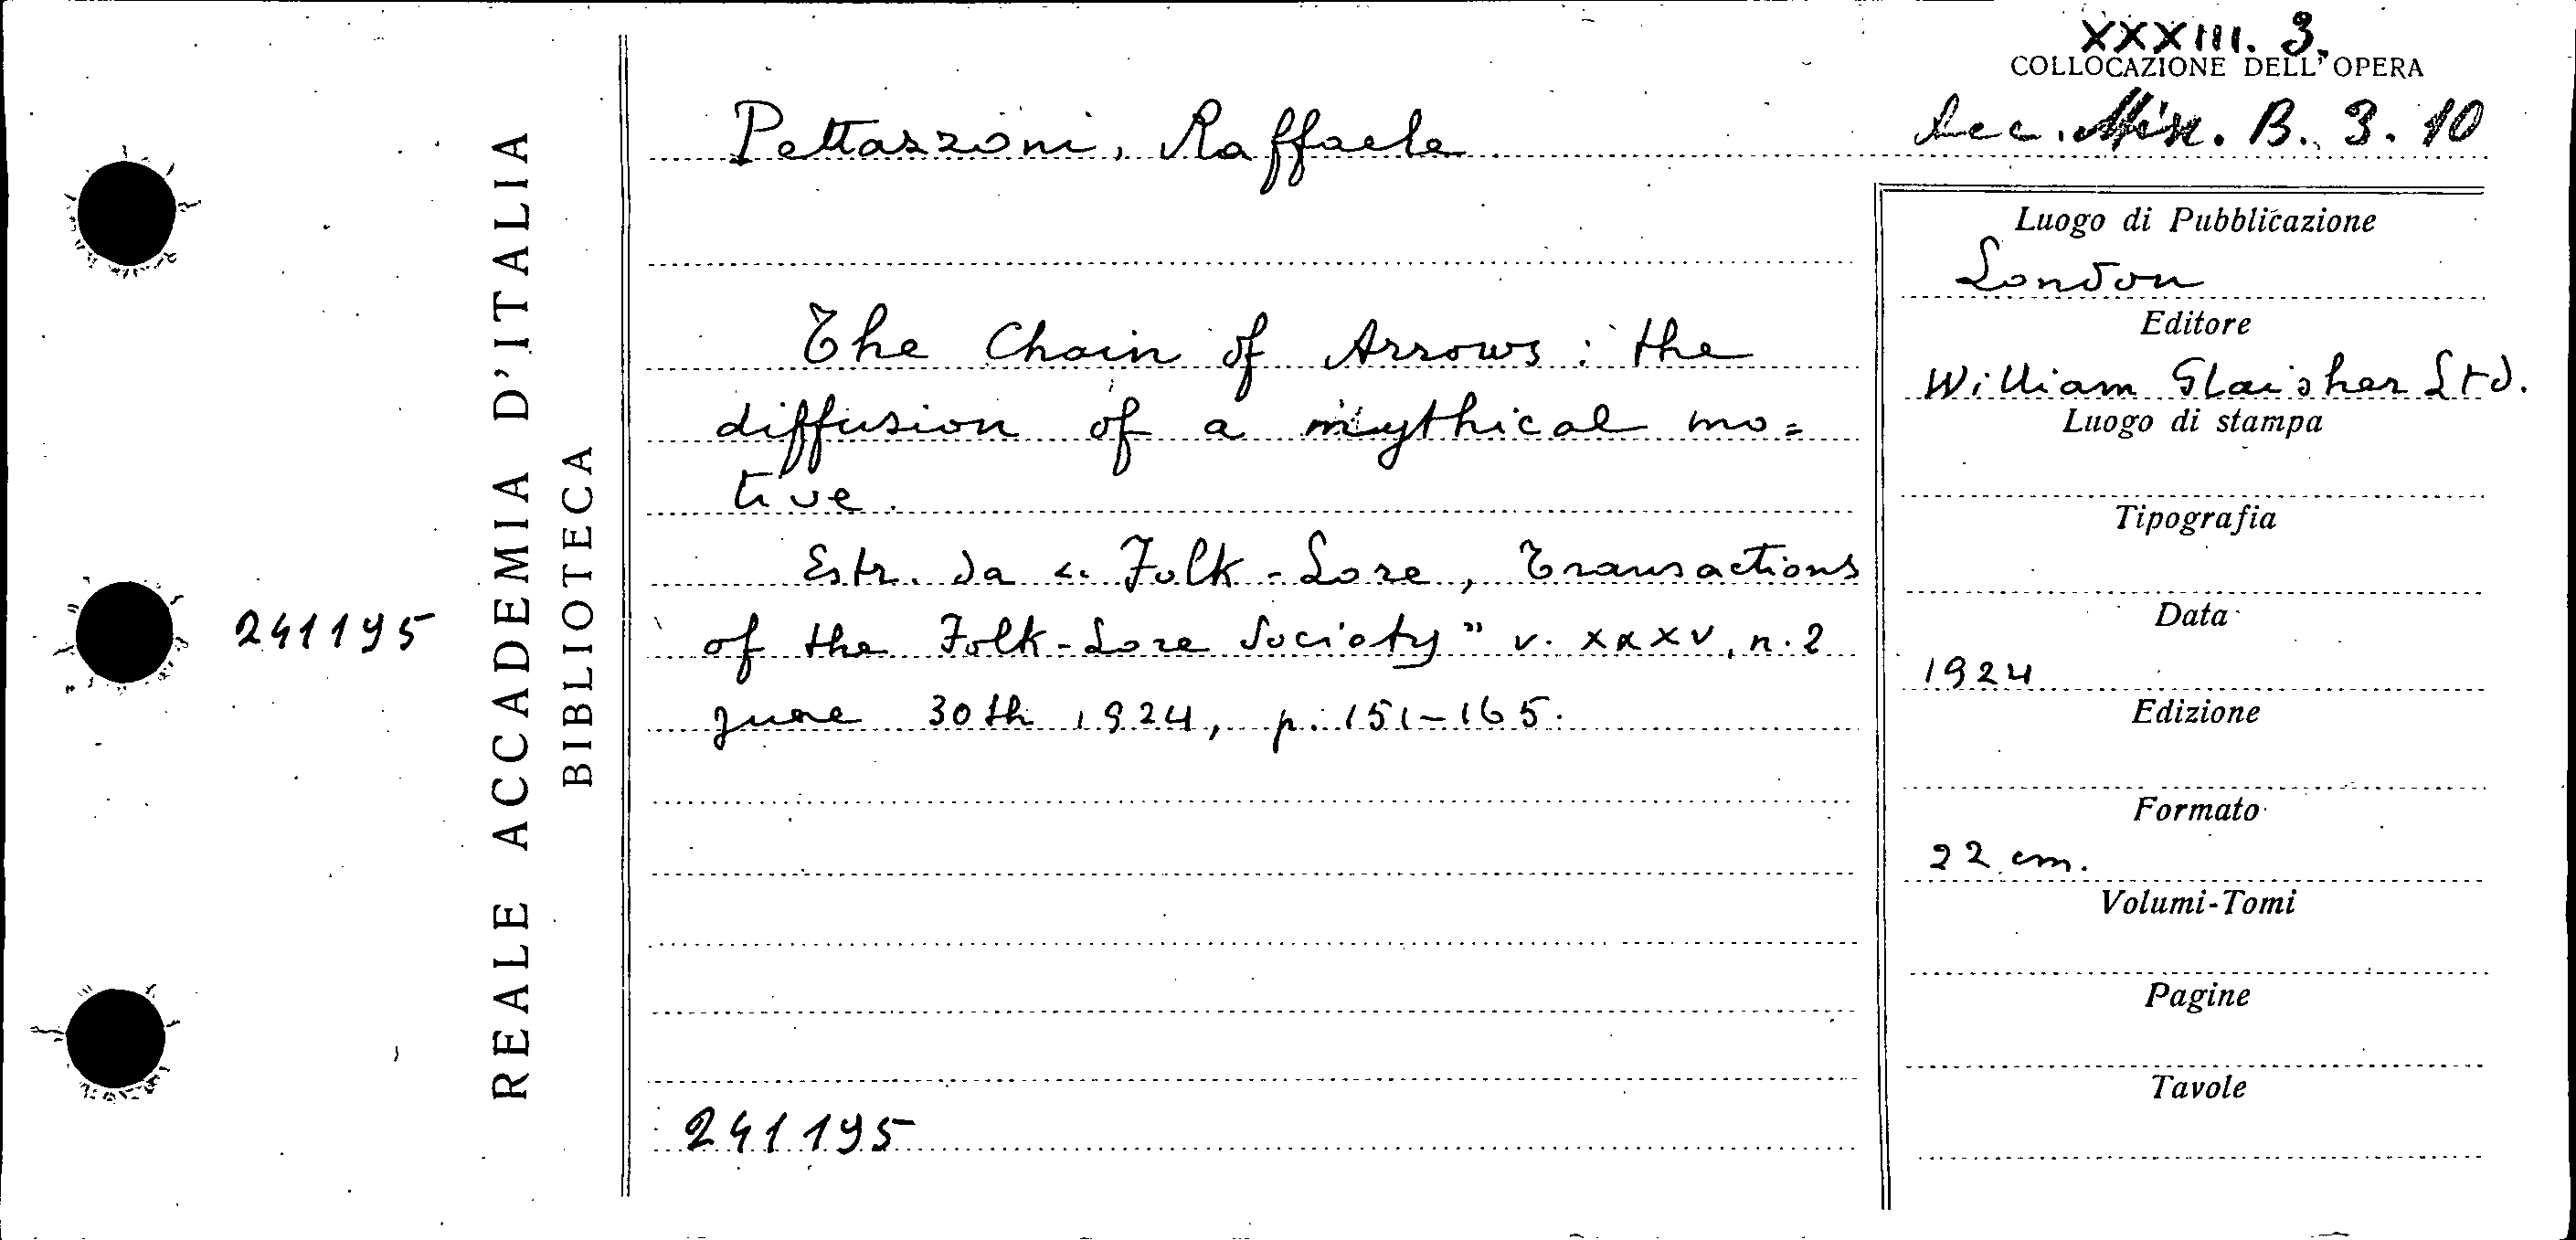 XXXIII. 3.
COLLOCAZIONE DELL'OPERA
Acc. Misc. B. 3. 10
Pettazzoni, Raffaele
The Chain of Arrows : the
diffusion of a mythical mo=
tive.
Estr. da « Folk-Lore, Transactions
of the Folk-Lore Society" v. XXXV, n. 2
June 30th 1924, p. 151-165.
241195
Luogo di Pubblicazione
London
Editore
William Glaisher Ltd.
Luogo di stampa
Tipografia
Data
1924
Edizione
Formato
22 cm.
Volumi-Tomi
Pagine
Tavole
REALE ACCADEMIA D'ITALIA
BIBLIOTECA
241195